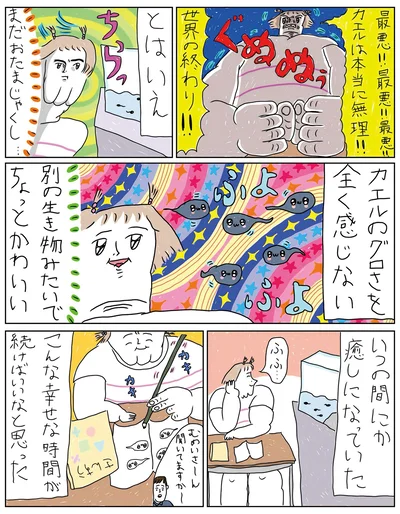 最悪!!最悪!!最悪!!
カエルは本当に無理!!
世界の終わり!!
ぐぬぬぅ
とはいえ
ちらっ
まだおたまじゃくし…
カエルのグロさを
全く感じない
ふよ
ふよ
別の生き物みたいで
ちょっとかわいい
いつの間にか
癒しになっていた
ふふ…
カキ
カキ
むめいさーん
聞いてますかー
こんな幸せな時間が
続けばいいなと思った